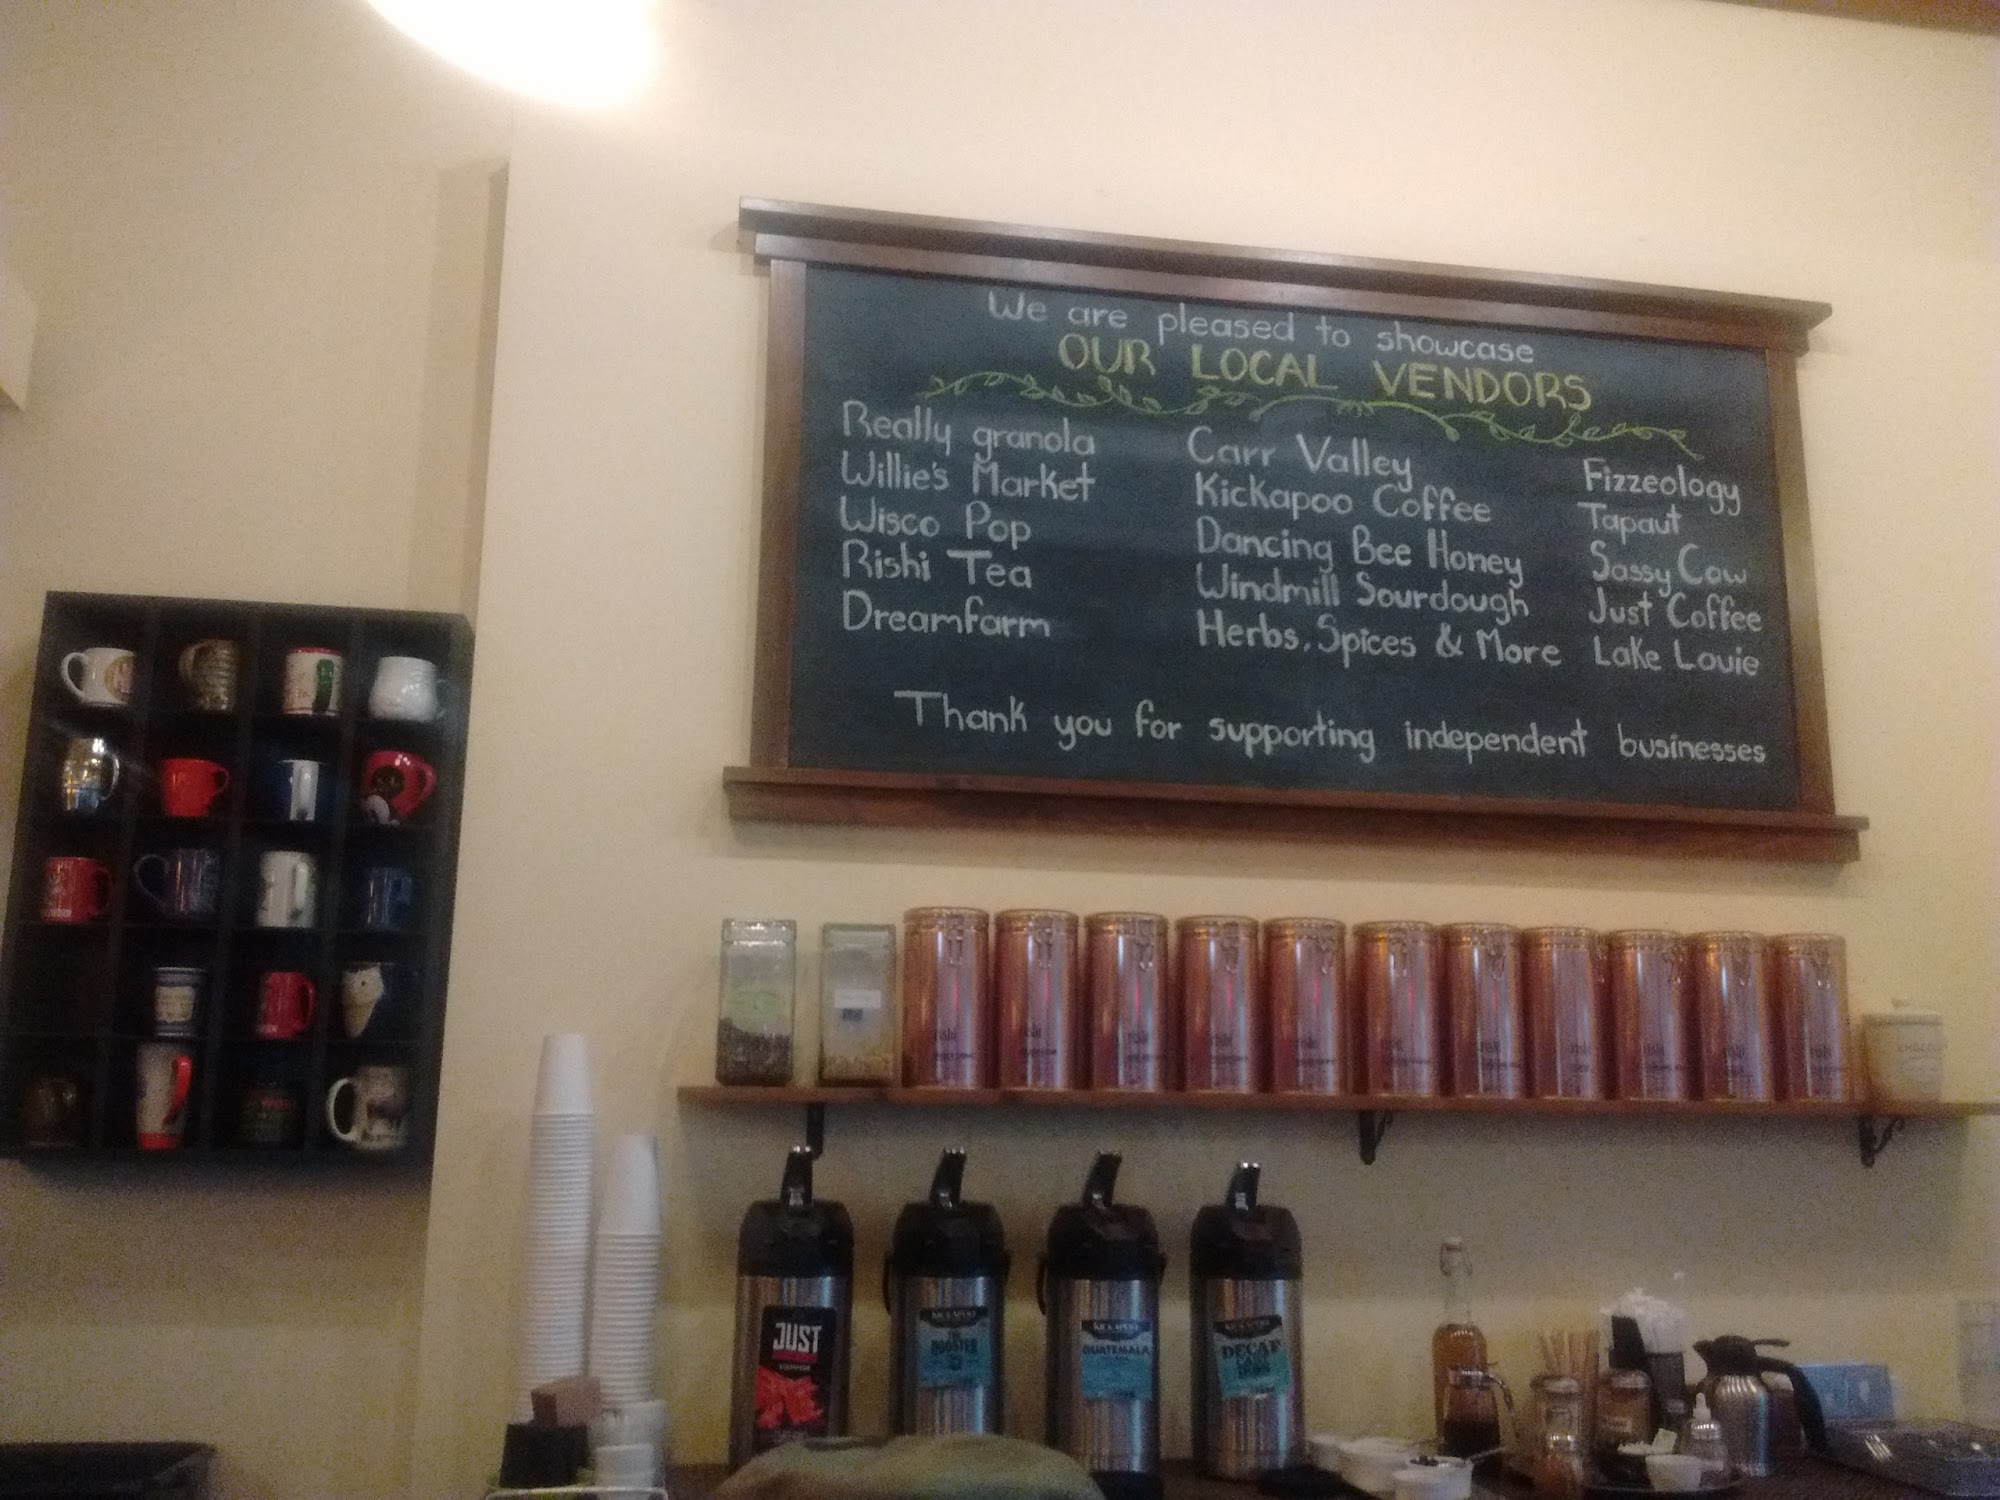 We are pleased to showcase
OUR LOCAL VENDORS
Really granola
Willie's Market
Wisco Pop
Rishi Tea
Dreamfarm
Carr Valley
Kickapoo Coffee
Dancing Bee Honey
Windmill Sourdough
Herbs, Spices & More
Fizzeology
Tapaut
Sassy Cow
Just Coffee
Lake Louie
Thank you for supporting independent businesses
JUST
KICKAPOO
ROOSTER
KICKAPOO
GUATEMALA
KICKAPOO
DECAF